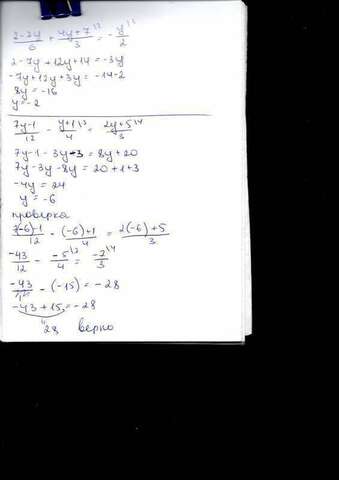 2-7y/6 + 4y+7\2/3 = -y\3/2
2-7y+12y+14=-3y
-7y+12y+3y=-14-2
8y=-16
y=-2
7y-1/12 - y+1\3/4 = 2y+5\4/3
7y-1-3y-3=8y+20
7y-3y-8y=20+1+3
-4y=24
y=-6
проверка
7(-6)-1/12 - (-6)+1/4 = 2(-6)+5/3
-43/12 - -5\3/4 = -7\4/3
-43/12 -(-15)=-28
-43+15=-28
-28 верно